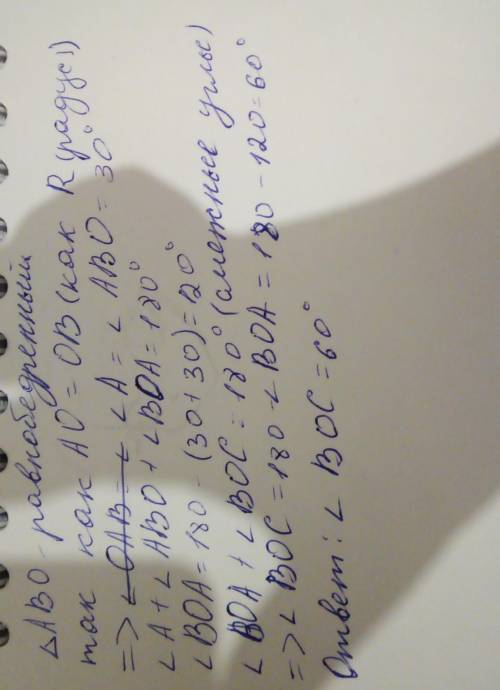 △ABO - равнобедренный
так как AO = OB (как R (радиус))
=> ∠OAB = ∠ ∠A = ∠ABO = 30°
∠A + ∠ABO + ∠BOA = 180°
∠BOA = 180 - (30 + 30) = 120°
∠BOA + ∠BOC = 180° (смежные углы)
=> ∠BOC = 180 - ∠BOA = 180 - 120 = 60°
Ответ: ∠BOC = 60°